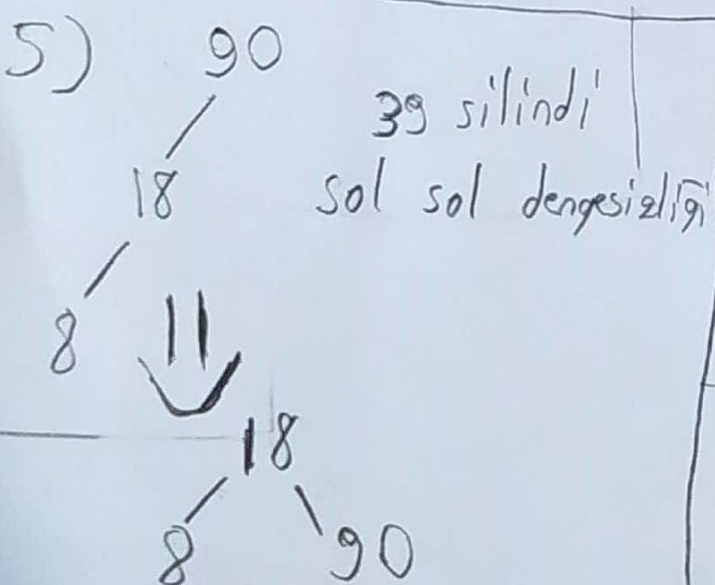 5) 90
39 silindi
18 sol sol dengesizliği
8
18
8 90